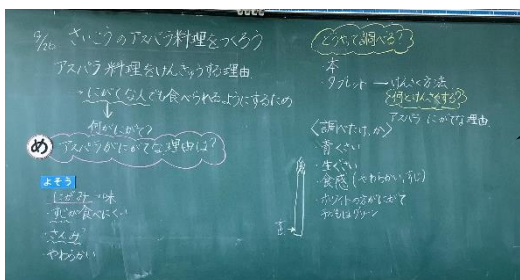 9/26 さいこうのアスパラ料理をつくろう
アスパラ料理をけんきゅうする理由
・にがてな人でも食べられるようにするため
何がにがて?
め アスパラがにがてな理由は?
よそう
・にがみ 味
・すじが食べにくい
・やわらかい
どうやって調べる?
本
タブレット → けんさく方法
何とけんさくする?
アスパラ にがてな理由
〈調べたけっか〉
・青くさい
・生ぐさい
・食感(やわらかい、すじ)
・ホワイトの方がにがて
子どもはグリーン